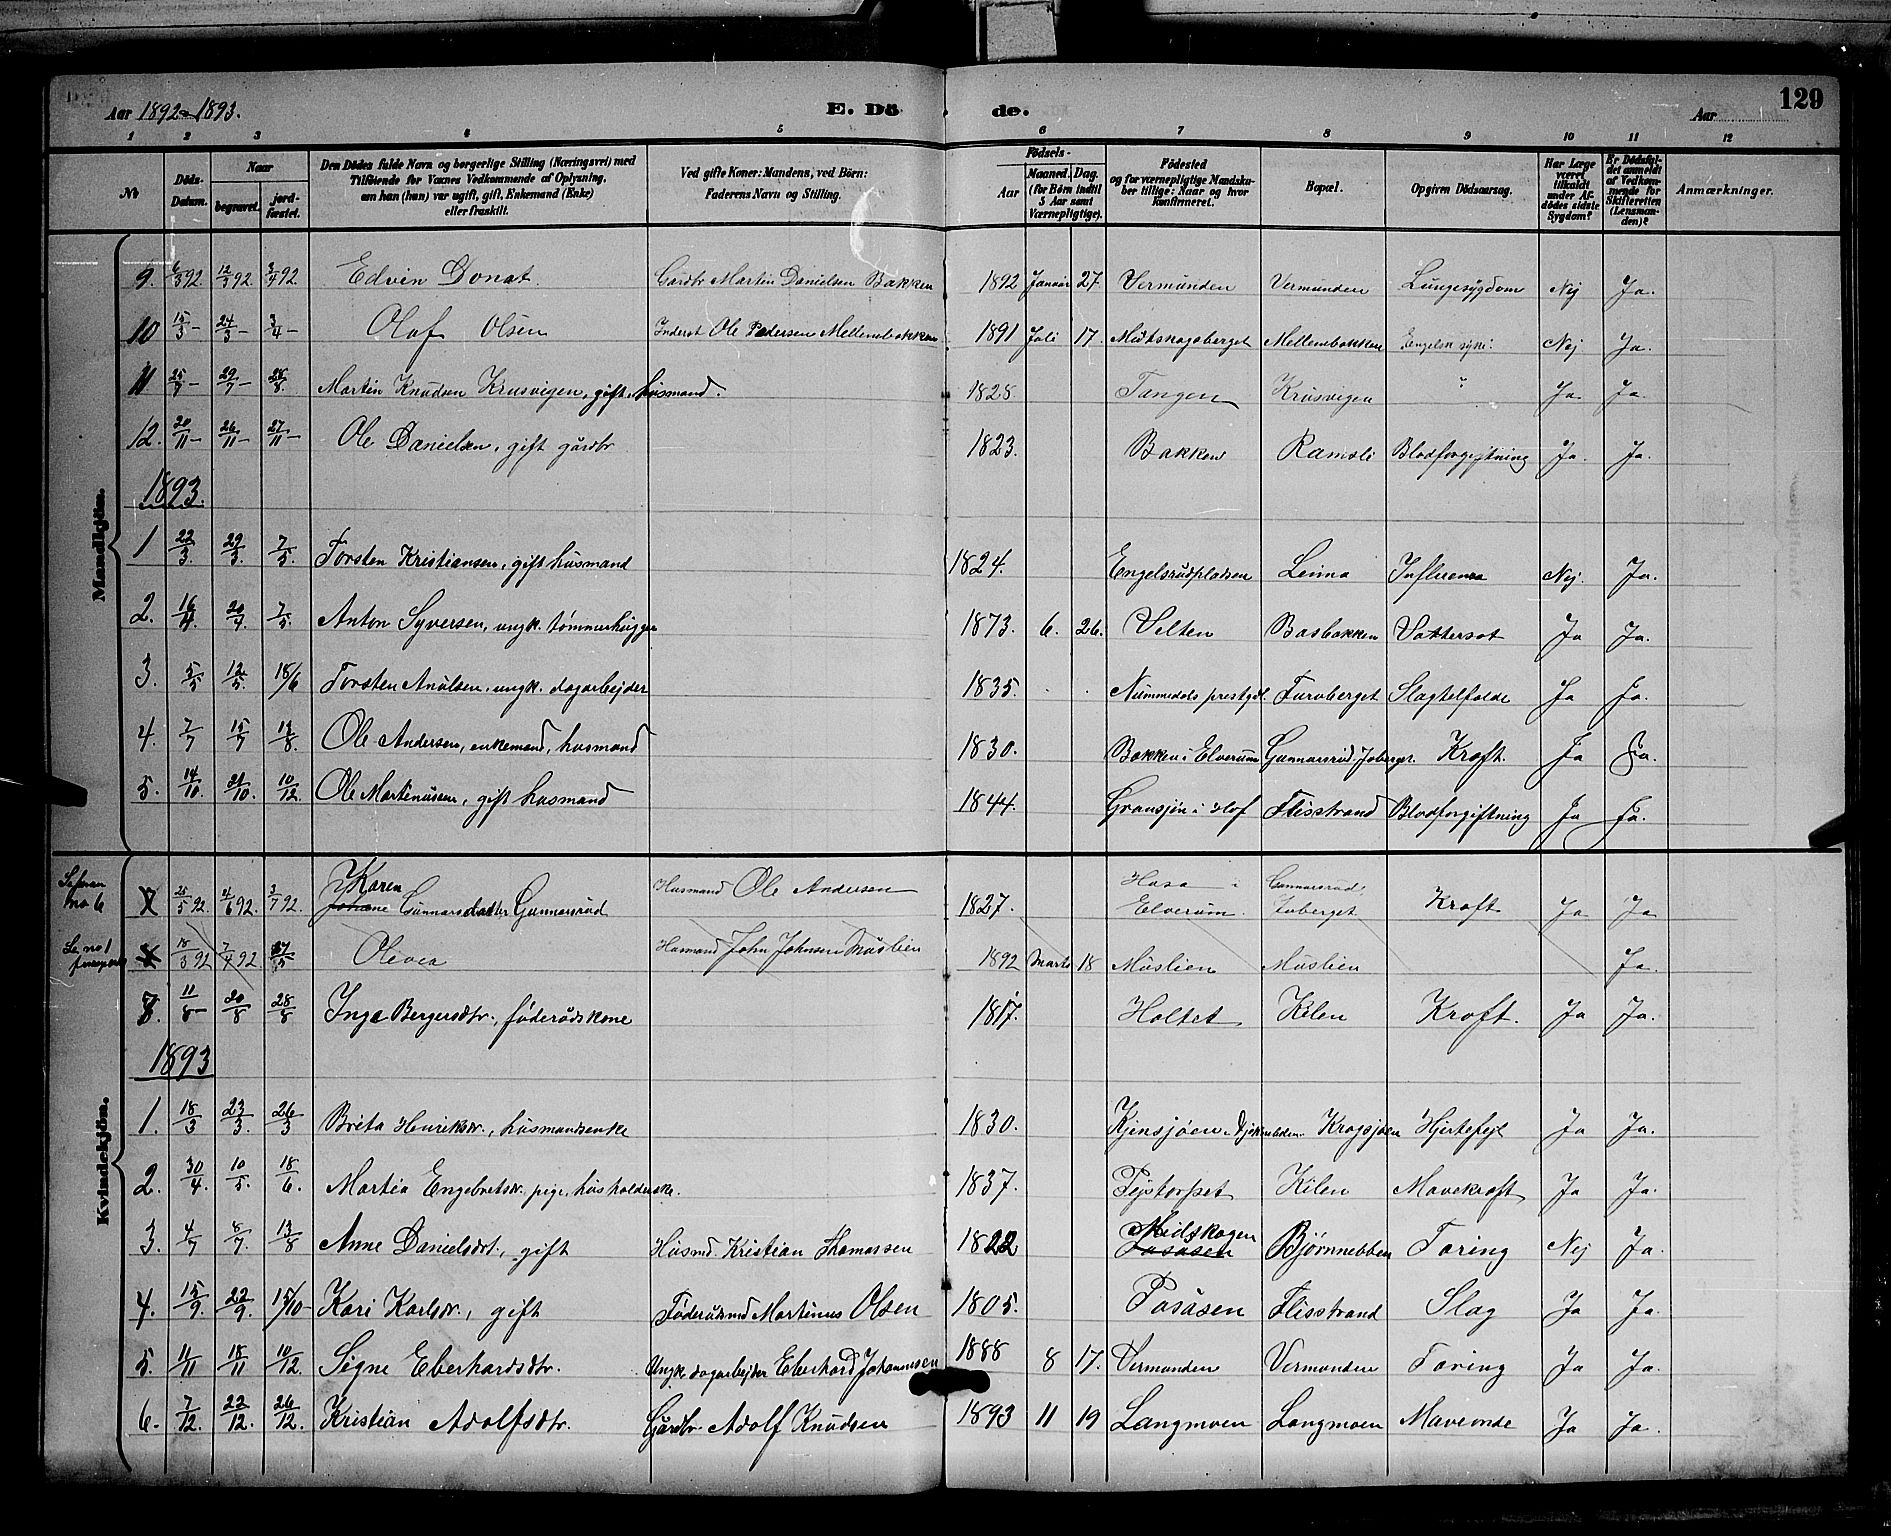 Aar 1892-1893. E. Dö de. Aar 129
1 2 3 4 5 6 7 8 9 10 11 12
№ Döds-Datum. Naar begravet. jordfæstet. Den Dødes fulde Navn og borgerlige Stilling (Næringsvei) med Tilføiende for Voxnes Vedkommende af Oplysning, om han (hun) var ugift, gift, Enkemand (Enke) eller fraskilt. Ved gifte Koner: Mandens, ved Börn: Faderens Navn og Stilling. Födsels- Aar Maaned. Dag. (for Börn indtil 5 Aar samt Værnepligtige). Födested og for værnepligtige Mandskaber tillige: Naar og hvor Konfirmeret. Bopæl. Opgiven Dödsaarsag. Har Læge været tilkaldt under Afdödes sidste Sygdom? Er Dödsfaldet anmeldt af Vedkommende for Skifteretten (Lensmanden)? Anmærkninger.
Mandkjön.
9. 6/3 92. 12/3 92. 3/4 92 Edvin Donat. Gårdbr Martin Danielsen Bakken 1892 Januar 27. Vermunden Vermunden Lungesygdom Nej Ja.
10 15/3 - 24/3 - 3/4 - Olaf Olsen Inderst Ole Pedersen Mellembakken 1891 Juli 17. Midtskogsberget Mellembakken Engelsk syke. Nej Ja.
11 25/7 - 29/7 - 28/8 Martin Knudsen Krusvigen, gift husmand. 1828 Tangen Krusvigen " Ja Ja.
12. 20/11 - 26/11 - 27/11 - Ole Danielsen, gift gårdbr 1823. Bakken Ramsli Blodforgiftning Ja. Ja.
1893.
1 22/3. 29/3. 7/5. Torsten Kristiansen, gift husmand 1824. Engelsrudpladsen Leima Influensa Nej. Ja.
2. 16/4. 20/4. 7/5. Anton Syversen, ungk. tømmerhugger 1873. 6. 26. Velten Basbakken Vattersot Ja Ja.
3. 5/5 12/5. 18/6 Torsten Anulsen, ungk. dagarbejder 1835. Nummedals prestgd. Furuberget Slagtilfælde Ja Ja.
4. 7/7 15/7 13/8. Ole Andersen, enkemand, husmand 1830. Bakken i Elverum Gunnarsrud Joberget. Kræft. Ja Ja.
5. 14/10. 21/10. 10/12. Ole Martinussen, gift husmand 1844. Gransjøen i Hof Flisstrand Blodforgiftning Ja Ja.
Kvindekjön.
No 6 25/5 92. 4/6 92. 3/7 92. Karen Johanne Gunnarsdatter Gunnarsrud Husmand Ole Andersen 1827. Hasa i Elverum. Gunnarsrud, Joberget Kræft Ja Ja
Se no 1 18/3 92 7/4 92 Olevea Husmand John Johnsen Muslien 1892 Marts 18 Muslien Muslien Ja.
7. 11/8 - 20/8 28/8 Inga Bergersdtr., føderådskone 1817. Holtet Kilen Kræft. Ja Ja.
1893
1. 18/3 23/3. 26/3 Brita Henriksdr., husmandsenke 1830. Kjensjøen Krogsjøen Hjertefejl Ja Ja.
2. 30/4. 10/5. 18/6. Martea Engebretsdr. pige, husholderske. 1837. Tejstorpet Kilen Mavekræft Ja Ja.
3. 4/7 8/7. 13/8 Anne Danielsdtr., gift Husmd. Kristian Thomassen 1822 Midskogen Pasåsen Bjørnnebben Tæring Nej Ja.
4. 15/9. 22/9. 15/10 Kari Karlsdr., gift Føderådsmd Martinus Olsen 1805. Pasåsen Flisstrand Slag Ja Ja.
5. 11/11 18/11 10/12. Signe Eberhardsdtr. Ungk. dagarbejder Eberhard Johannesen 1888 8 17. Vermunden Vermunden Tæring Ja Ja.
6. 7/12. 22/12. 26/12. Kristian Adolfsdtr. Gårdbr. Adolf Knudsen 1893 11 19 Langmoen Langmoen Maveonde Ja Ja.